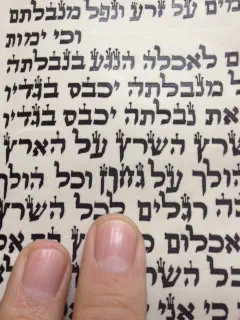 מים על זרע ונפל מנבלתם
וכי ימות
ם לאכלה הנגע בנבלתה
ל מנבלתה יכבס בגדיו
את נבלתה יכבס בגדיו
השרץ השרץ על הארץ
הולך על גחון וכל הולך
בה רגלים לכל השרץ
אכלום
כל השר
כי אני